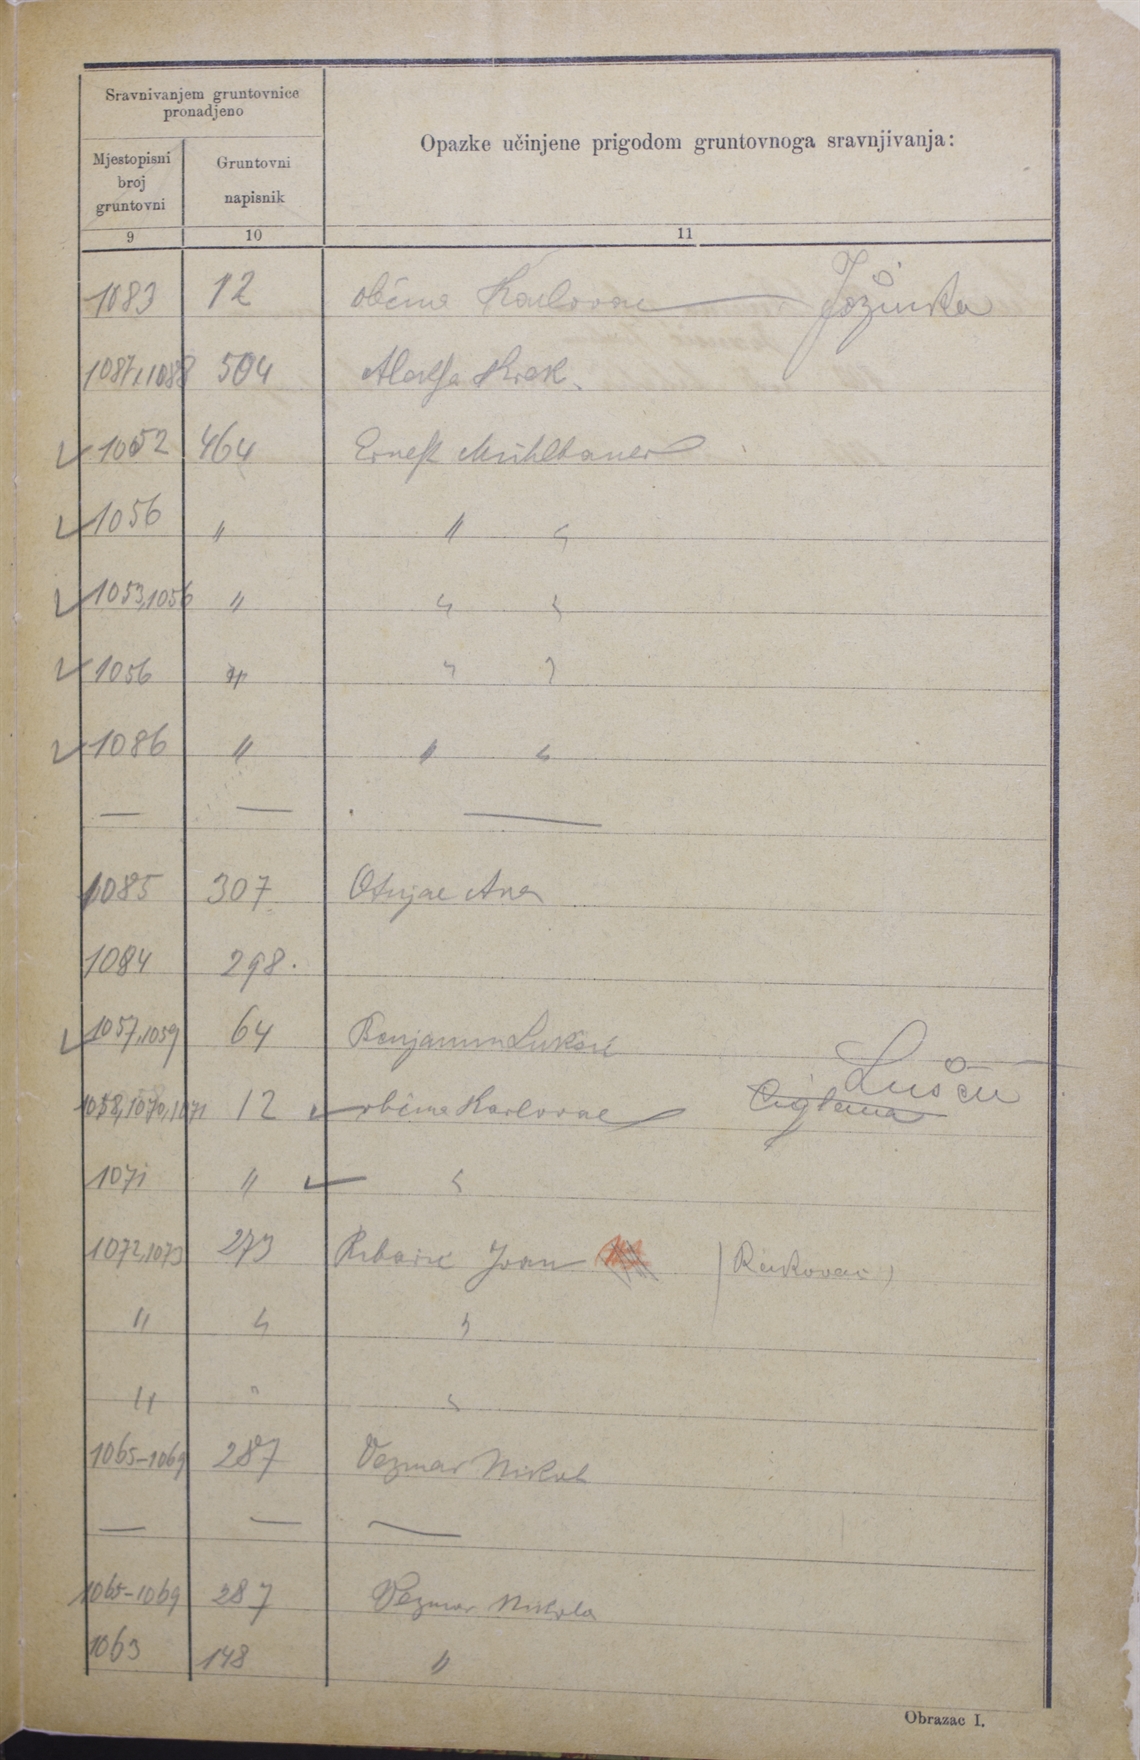 Sravnivanjem gruntovnice
pronadjeno
Mjestopisni
broj
gruntovni
Gruntovni
napisnik
Opazke učinjene prigodom gruntovnoga sravnjivanja:
9 10 11
1083 12 obćina Karlovac Jožinka
1087,1088 504 Krek
1052 464 Ernest Mühlbauer
1056 " " "
1053,1056 " " "
1056 " " "
1086 " " "
— — —
1085 307 Ana
1084 298.
1057,1059 64 Benjamin Lukšić
1058,1070,1071 12 obćina Karlovac
1071 " "
1072,1073 273 Ribarić Ivan
" " "
" " "
1065-1069 287 Vezmar Nikola
— — —
1065-1069 287 Vezmar Nikola
1063 148 "
Obrazac I.